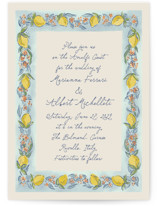 Please join us
on the Amalfi Coast
for the wedding of
Marianna Ferrara
&
Albert Michellote
Saturday, June 21,
at in the evening
The Belmond, Caruso
Ravello, Italy
Festivities to follow